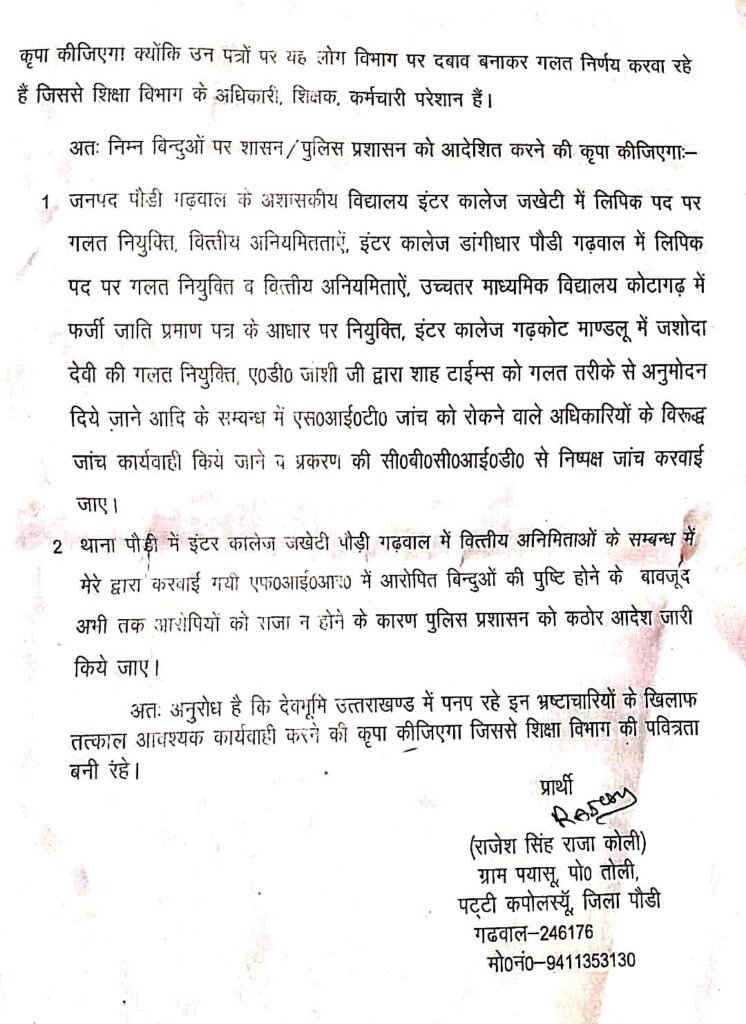 कृपा कीजिएगा क्योंकि उन पत्रों पर यह लोग विभाग पर दबाव बनाकर गलत निर्णय करवा रहे
हैं जिससे शिक्षा विभाग के अधिकारी, शिक्षक, कर्मचारी परेशान हैं।
अतः निम्न बिन्दुओं पर शासन/पुलिस प्रशासन को आदेशित करने की कृपा कीजिएगाः–
1 जनपद पौडी गढ़वाल के अशासकीय विद्यालय इंटर कालेज जखेटी में लिपिक पद पर
गलत नियुक्ति, वित्तीय अनियमितताऐं, इंटर कालेज डांगीधार पौडी गढ़वाल में लिपिक
पद पर गलत नियुक्ति व वित्तीय अनियमिताऐं, उच्चतर माध्यमिक विद्यालय कोटागढ़ में
फर्जी जाति प्रमाण पत्र के आधार पर नियुक्ति, इंटर कालेज गढ़कोट माण्डलू में जशोदा
देवी की गलत नियुक्ति, ए0डी0 जोशी जी द्वारा शाह टाईम्स को गलत तरीके से अनुमोदन
दिये जाने आदि के सम्बन्ध में एस0आई0टी0 जांच को रोकने वाले अधिकारियों के विरूद्ध
जांच कार्यवाही किये जाने व प्रकरण की सी0बी0सी0आई0डी0 से निष्पक्ष जांच करवाई
जाए।
2 थाना पौड़ी में इंटर कालेज जखेटी पौड़ी गढ़वाल में वित्तीय अनिमिताओं के सम्बन्ध में
मेरे द्वारा करवाई गयी एफ0आई0आर0 में आरोपित बिन्दुओं की पुष्टि होने के बावजूद
अभी तक आरोपियों को सजा न होने के कारण पुलिस प्रशासन को कठोर आदेश जारी
किये जाए।
अतः अनुरोध है कि देवभूमि उत्तराखण्ड में पनप रहे इन भ्रष्टाचारियों के खिलाफ
तत्काल आवश्यक कार्यवाही करने की कृपा कीजिएगा जिससे शिक्षा विभाग की पवित्रता
बनी रंहे।
प्रार्थी
(राजेश सिंह राजा कोली)
ग्राम पयासू, पो0 तोली,
पट्टी कपोलस्यूँ, जिला पौडी
गढवाल–246176
मो0नं0–9411353130